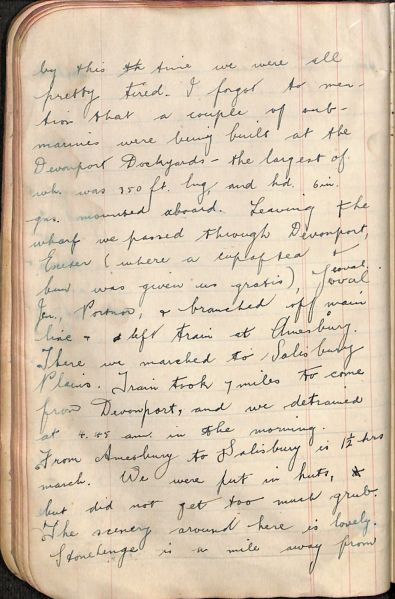 by this th time we were all
pretty tired. I forgot to men-
tion that a couple of sub-
marines were being built at the
Devonport Dockyards - the largest of
wh. was 350 ft. lng, and hd. 6in.
gns. mounted aboard. Leaving the
wharf we passed through Devonport,
Exeter (where a cup of tea &
bun was given us gratis),
Jn., & branched off main
line & left train at Amesbury.
There we marched to Salisbury
Plains. Train took 7 miles to come
from Devonport, and we detrained
at 4.45 am. in the morning.
From Amesbury to Salisbury is 1½ hrs
march. We were put in huts,
but did not get too much grub.
The scenery around here is lovely.
Stonehenge is a mile away from